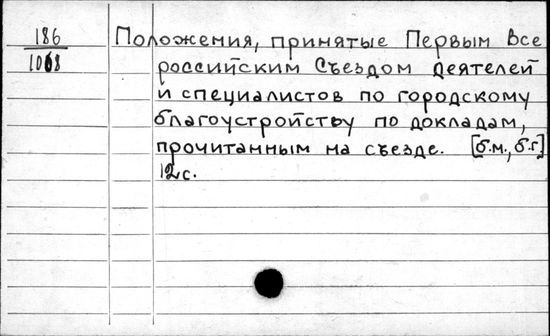 186
1068
Положения, принятые Первым Все
российским Съездом деятелей
и специалистов по городскому
благоустройству по докладам,
прочитанным на съезде. [б.м., б.г]
12с.